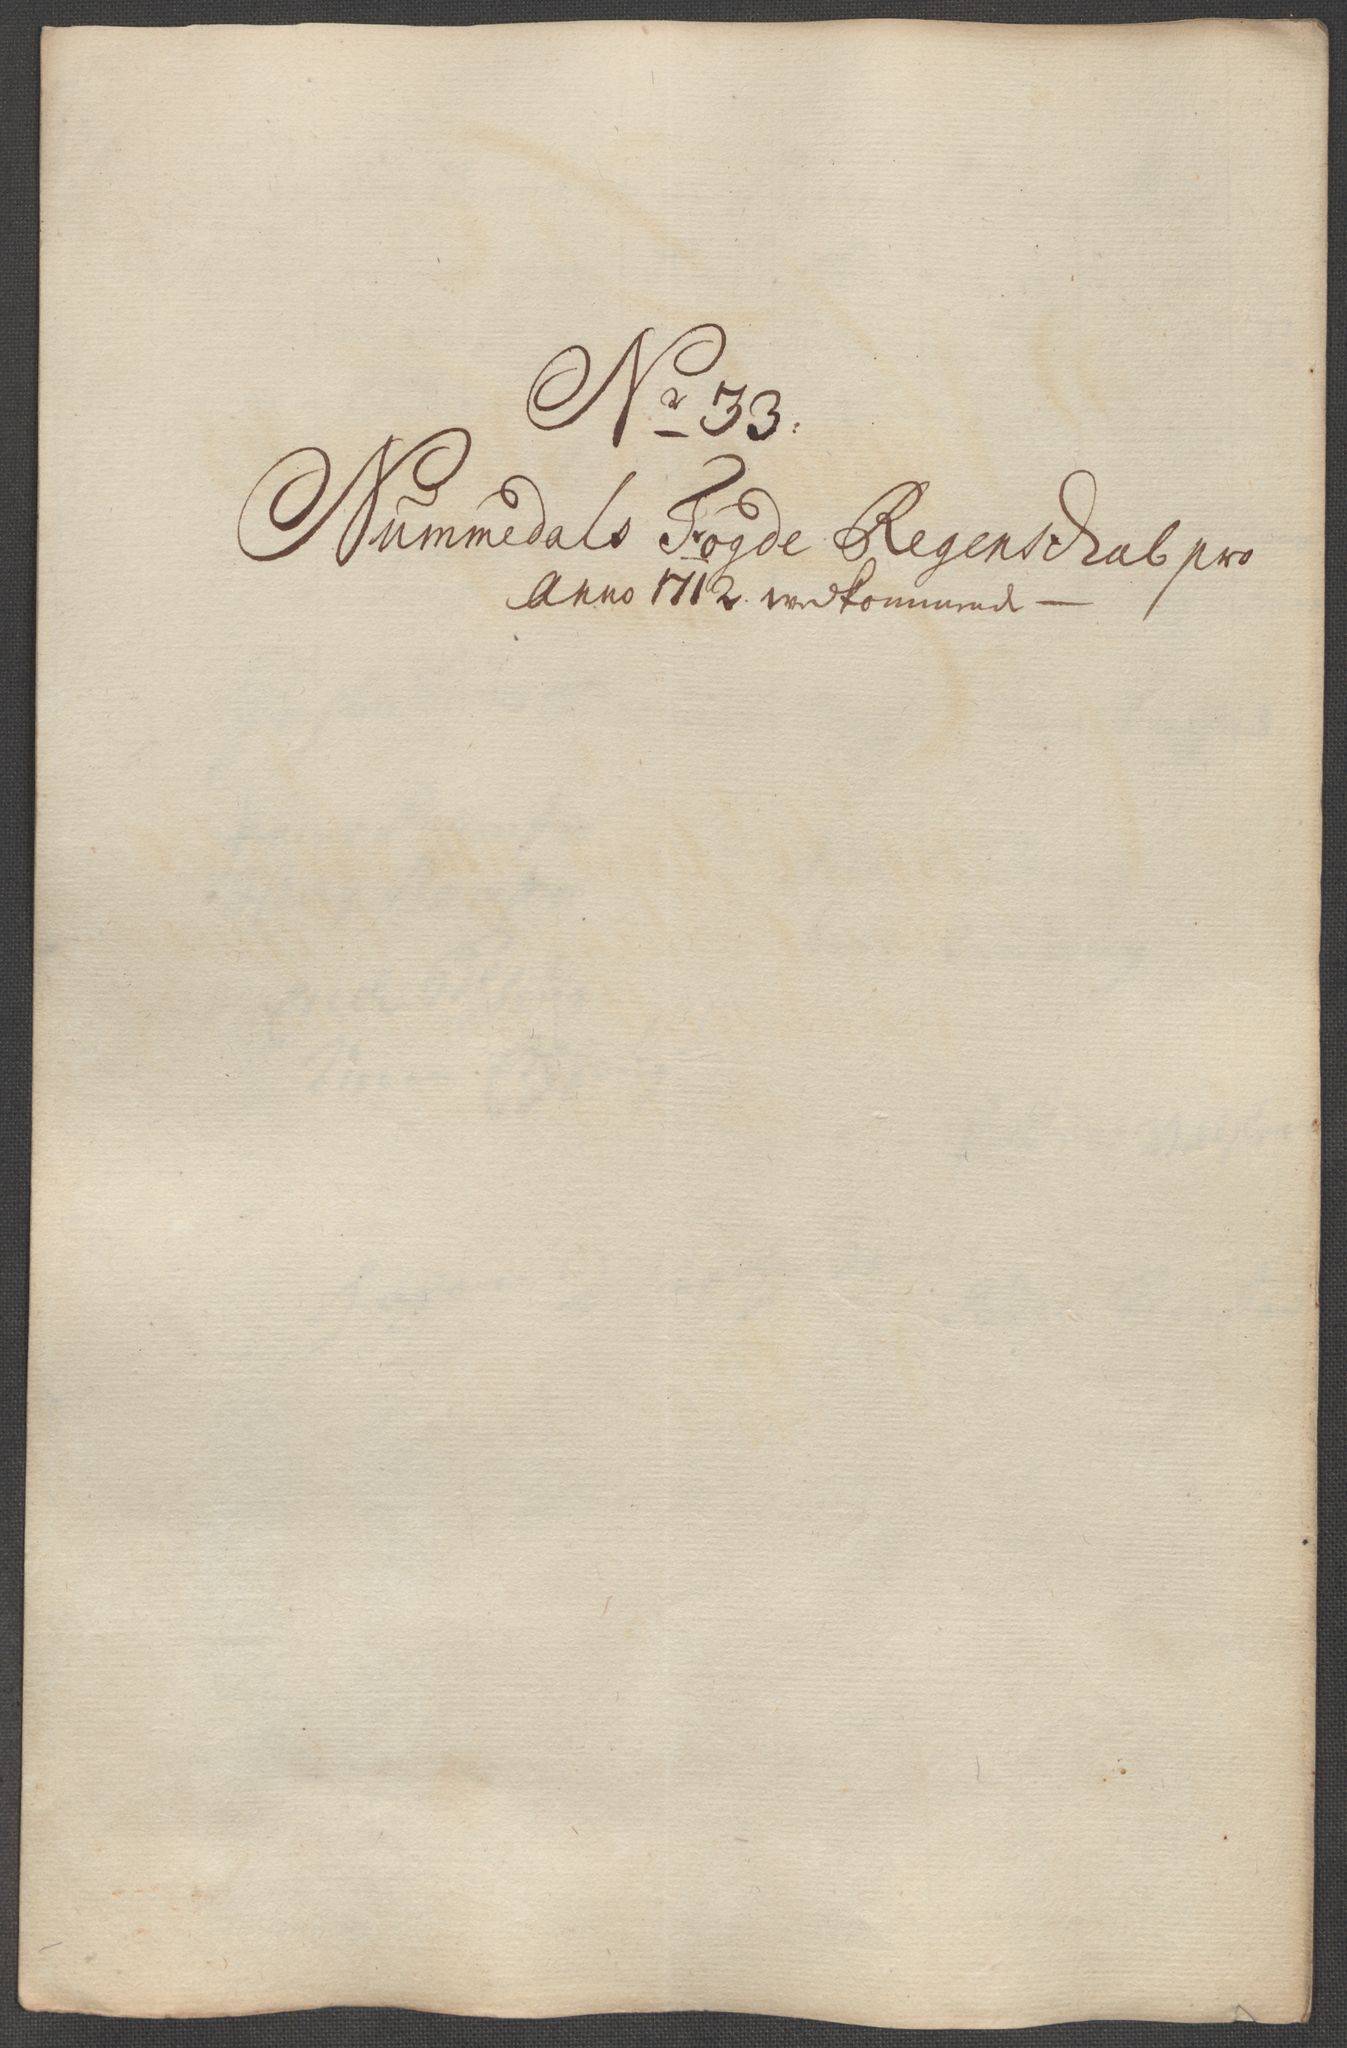 Nr 33.
Nummedals Fogde Regenschab pro
Anno 1712. vedkommende —